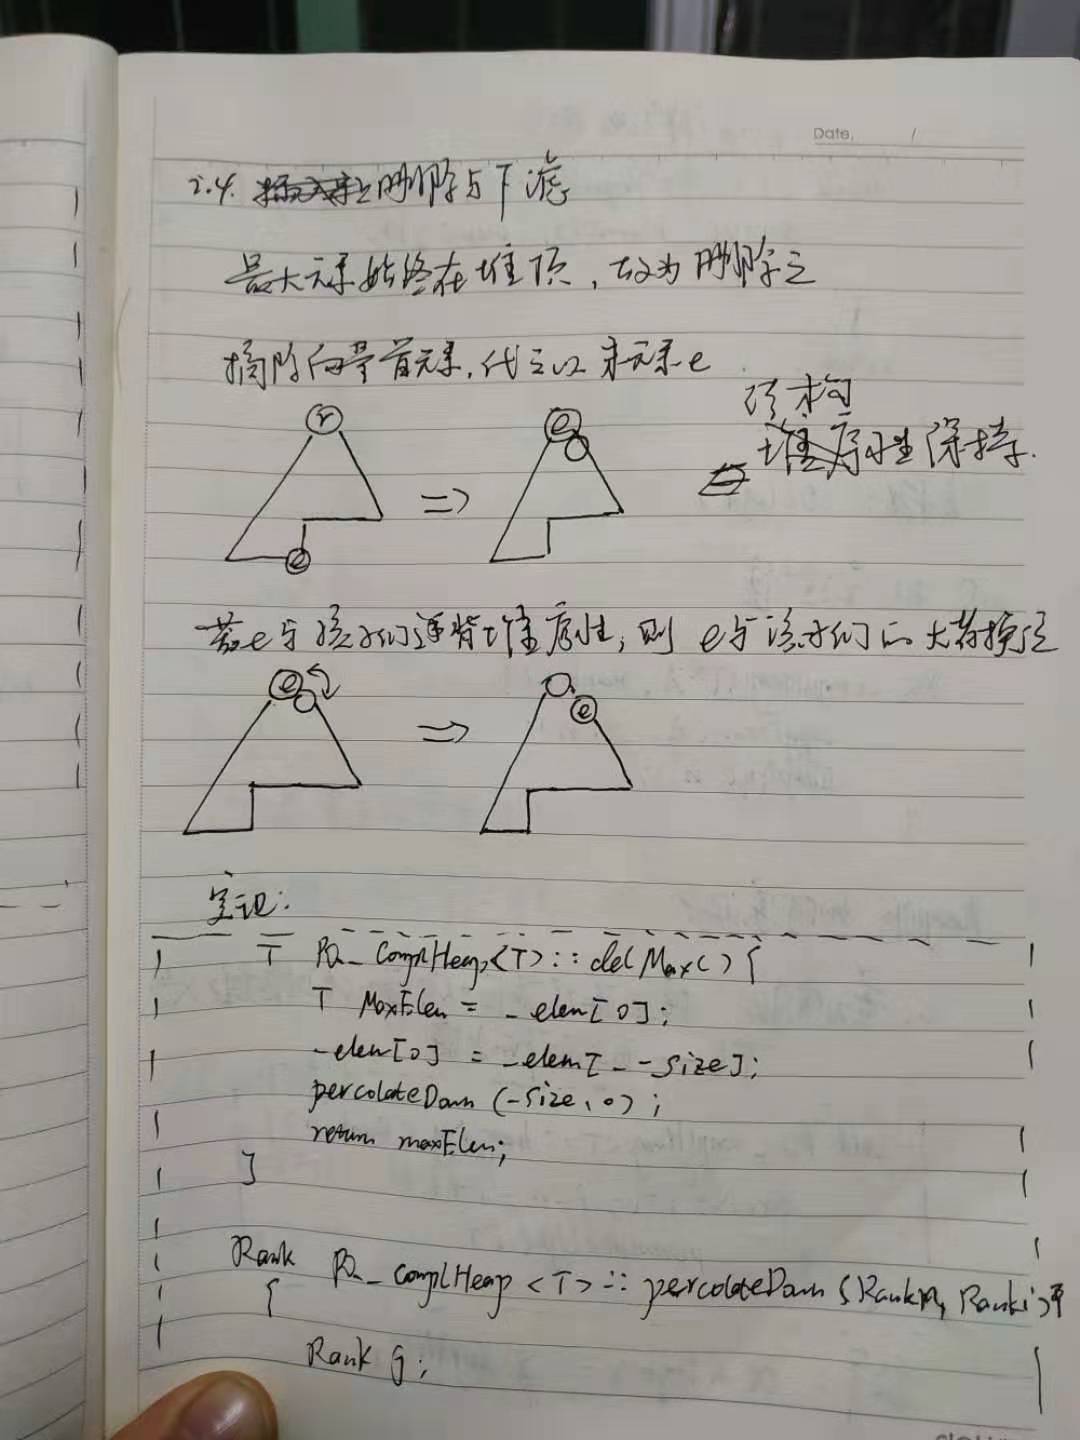 Date.      /
2.4. 删除与下滤
最大元素始终在堆顶，故为删除之
摘除向量首元素，代之以末元素e
结构
堆序性保持.
r
e
⇒
e
若e与孩子们违背堆序性，则 e与孩子们的大者换位
e
⇒
e
实现：
T PQ_ComplHeap<T>::delMax() {
T MaxElem = _elem[0];
_elem[0] = _elem[--size];
percolateDown (_size, 0);
return maxElem;
}
Rank PQ_ComplHeap<T>::percolateDown (Rank n, Rank i)
{
Rank j;